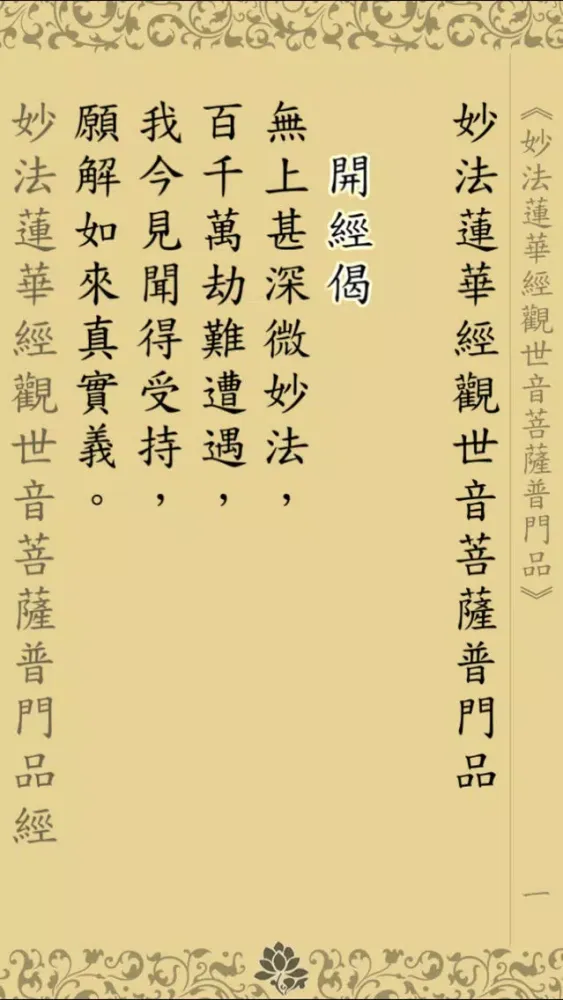 《妙法蓮華經觀世音菩薩普門品》
一
妙法蓮華經觀世音菩薩普門品
開經偈
無上甚深微妙法，
百千萬劫難遭遇，
我今見聞得受持，
願解如來真實義。
妙法蓮華經觀世音菩薩普門品經